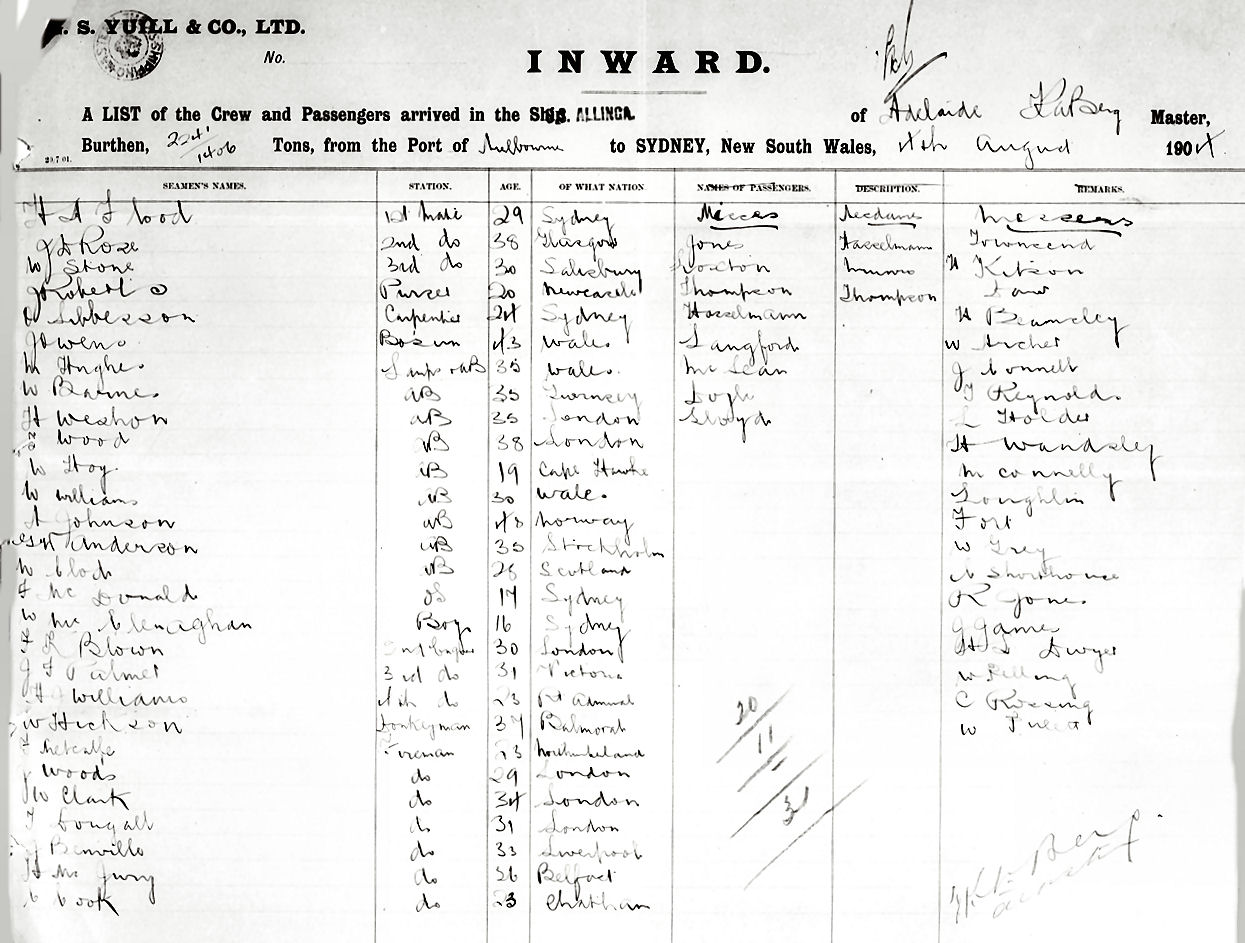 S. YUILL & CO., LTD.
No.
INWARD.
A LIST of the Crew and Passengers arrived in the Ship S.S. ALLINGA of Adelaide Master,
Burthen, 2241/1406 Tons, from the Port of Melbourne to SYDNEY, New South Wales, 4th August 1904.
20.7.01.
SEAMEN'S NAMES. STATION. AGE. OF WHAT NATION. NAMES OF PASSENGERS. DESCRIPTION. REMARKS.
1st Mate 29 Sydney Misses Mesdames Messers
J A Rose 2nd do 38 Glasgow Jones Hasselmann Townsend
W Stone 3rd do 30 Salisbury Loxton Munro H Kitson
J Roberts Purser 20 Newcastle Thompson Thompson
Carpenter 24 Sydney Hasselmann H Beamsley
J Owens Bosun 43 Wales Langford W Archer
M Hughes Lamps & AB 35 Wales McLean J Connell
W Barnes AB 35 Guernsey Doyle T Reynolds
H Weston AB 35 London Lloyd L Holder
Wood AB 38 London H Wandsley
W Hoy AB 19 Cape Hawke M Connelly
W Williams AB 30 Wales Loughlin
A Johnson AB 48 Norway Fort
Anderson AB 35 Stockholm W Grey
AB 28 Scotland Shorthouse
F McDonald OS 17 Sydney R Jones
W McClenaghan Boy 16 Sydney J James
F R Blown 30 London Dwyer
J F Palmer 3rd do 31 Victoria W Pilling
H Williams 4th do 23 Pt Admiral C Rossing
W Hickson Donkeyman 37 Balmoral W
F Metcalfe Fireman 23 Northumberland
J Woods do 29 London
J W Clark do 34 London
T Dougall do 31 London
J Benville do 33 Liverpool
H McJury do 26 Belfast
C Cook do 23 Chatham
20
11
31